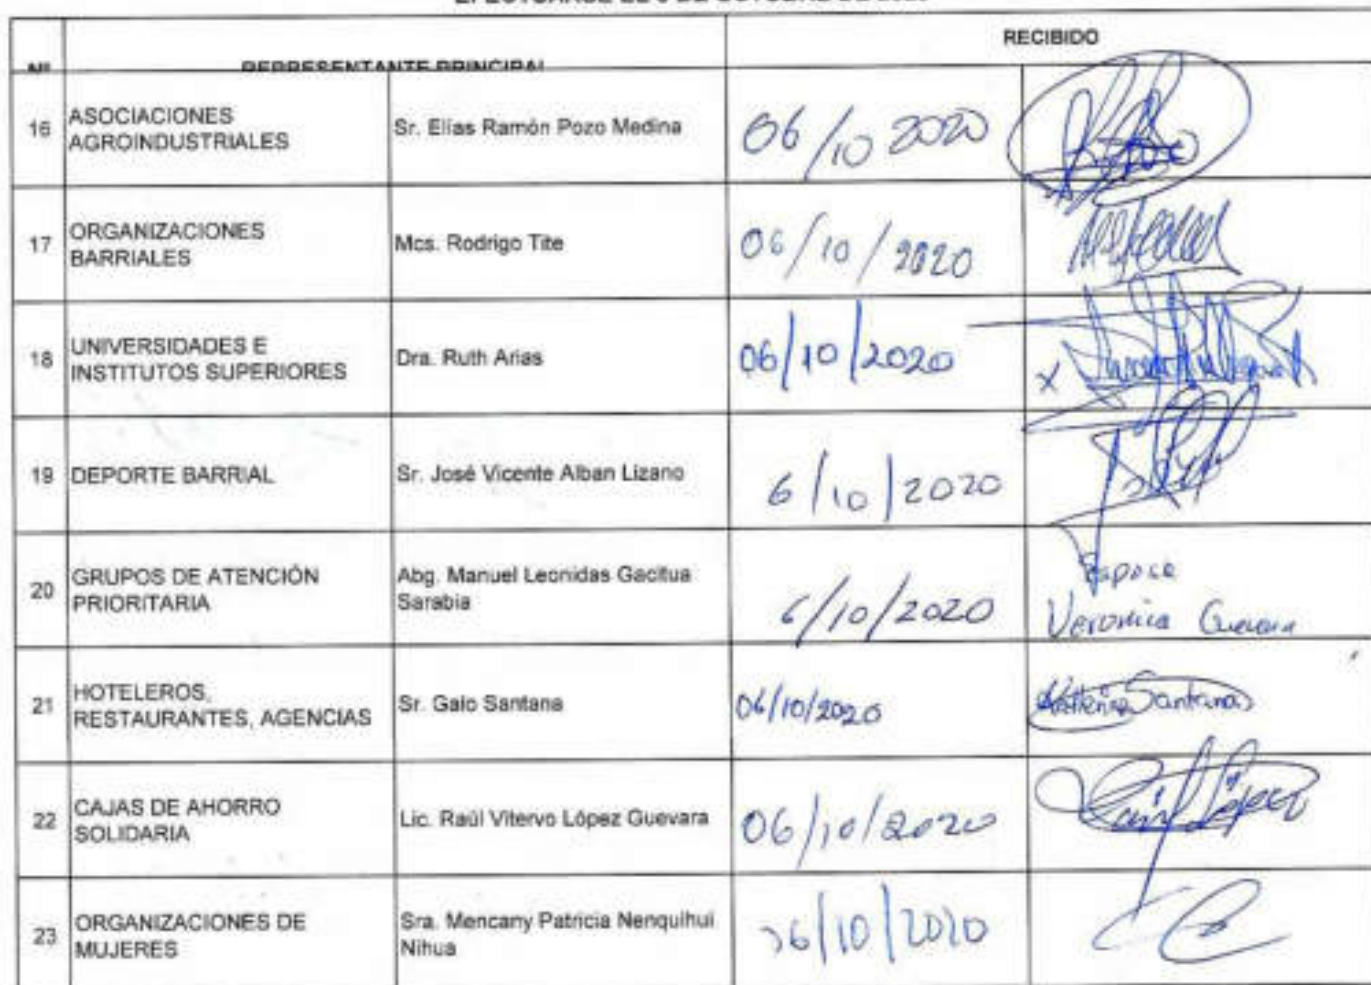 RECIBIDO
Nº REPRESENTANTE PRINCIPAL
16 ASOCIACIONES AGROINDUSTRIALES Sr. Elías Ramón Pozo Medina 06/10 2020
17 ORGANIZACIONES BARRIALES Mcs. Rodrigo Tite 06/10/2020
18 UNIVERSIDADES E INSTITUTOS SUPERIORES Dra. Ruth Arias 06/10/2020 x
19 DEPORTE BARRIAL Sr. José Vicente Alban Lizano 6/10/2020
20 GRUPOS DE ATENCIÓN PRIORITARIA Abg. Manuel Leonidas Gacitua Sarabia 6/10/2020 Veronica Guevara
21 HOTELEROS, RESTAURANTES, AGENCIAS Sr. Galo Santana 06/10/2020 Santana
22 CAJAS DE AHORRO SOLIDARIA Lic. Raúl Vitervo López Guevara 06/10/2020 Raúl López
23 ORGANIZACIONES DE MUJERES Sra. Mencany Patricia Nenquihui Nihua 06/10/2020